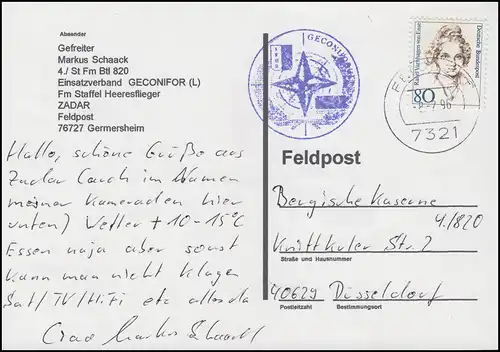 Absender
Gefreiter
Markus Schaack
4./ St Fm Btl 820
Einsatzverband GECONIFOR (L)
Fm Staffel Heeresflieger
ZADAR
Feldpost
76727 Germersheim
Hallo, schöne Grüße aus
Zadar (auch im Namen
meiner Kameraden hier
unten) Wetter +10-15°C
Essen naja aber sonst
kann man nicht klagen
Sat/TV/HiFi etc alles da
Ciao Markus Schaack
GECONIFOR
Deutsche Bundespost
80
96
7321
Feldpost
Bergische Kaserne
4./820
Knittkuler Str. 2
Straße und Hausnummer
40629 Düsseldorf
Postleitzahl Bestimmungsort